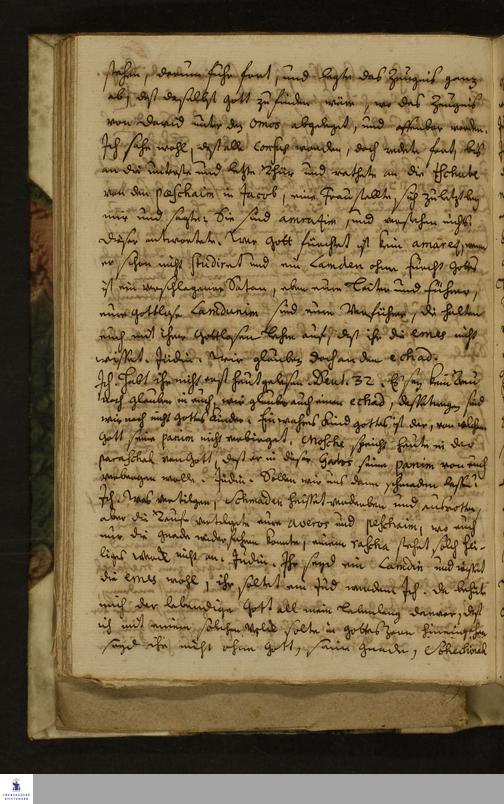 stehen, darum fuhr fort, und legte das Zeugnis ganz
ab, daß daselbst Gott zu finden wäre, wo das Zeugnis
von David unter den Emos abgelegt, und offenbar worden.
Ich sahe wohl, daß alle confus worden, doch redete fort, bis
an die unterste und letzte Thür und rathete an die
von den peschaim in Jacob, eine Frau stellte sich zuletzt bey
mir und sagte: Sie sind amrazim, und verstehen nichts.
Dieser antwortete: Wer Gott fürchtet ist kein amarez, wenn
er schon nicht studiret und ein Lamden ohne Furcht Gottes
ist ein verschlagener Satan, eben eure Leiter und Führer,
eure gottlose Lamdunim sind eure Verführer, die halten
euch mit ihrer gottlosen Lehre auf, daß ihr die emes nicht
wisset. Jüdin. Wir glauben doch an den echad.
Ich. Habt ihr nicht erst heut gelesen Deut. 32. Es sey kein
noch glauben in euch, wir glauben auch einen echad, deßwegen sind
wir noch nicht Gottes Kinder. Ein wahres Kind Gottes ist der, von welchem
Gott seine panim nicht verbirget, Mosche spricht heute in der
paraschah von Gott, daß er in dieser Golus seine panim von euch
verbergen wolle. Jüdin. Sollen wir uns denn schmaden lassen?
Ich. Was vertilgen, Schmaden heisset verderben und ausrotten,
aber die Taufe vertilgete eure averos und peschaim, wo euch
nur die Gnade wiederfahren könnte, einem rascha stehet solch hei-
liges Werck nicht an. Jüdin. Ihr seyd ein Lamden und wisset
die emes wohl, ihr soltet ein Jud werden. Ich. Da behüte
mich der lebendige Gott all mein Lebenlang davor, daß
ich mit einem solchen Volck solte in Gottes Zorn hineingehen
seyd ihr nicht ohne Gott, seine Gnade, Schechinah